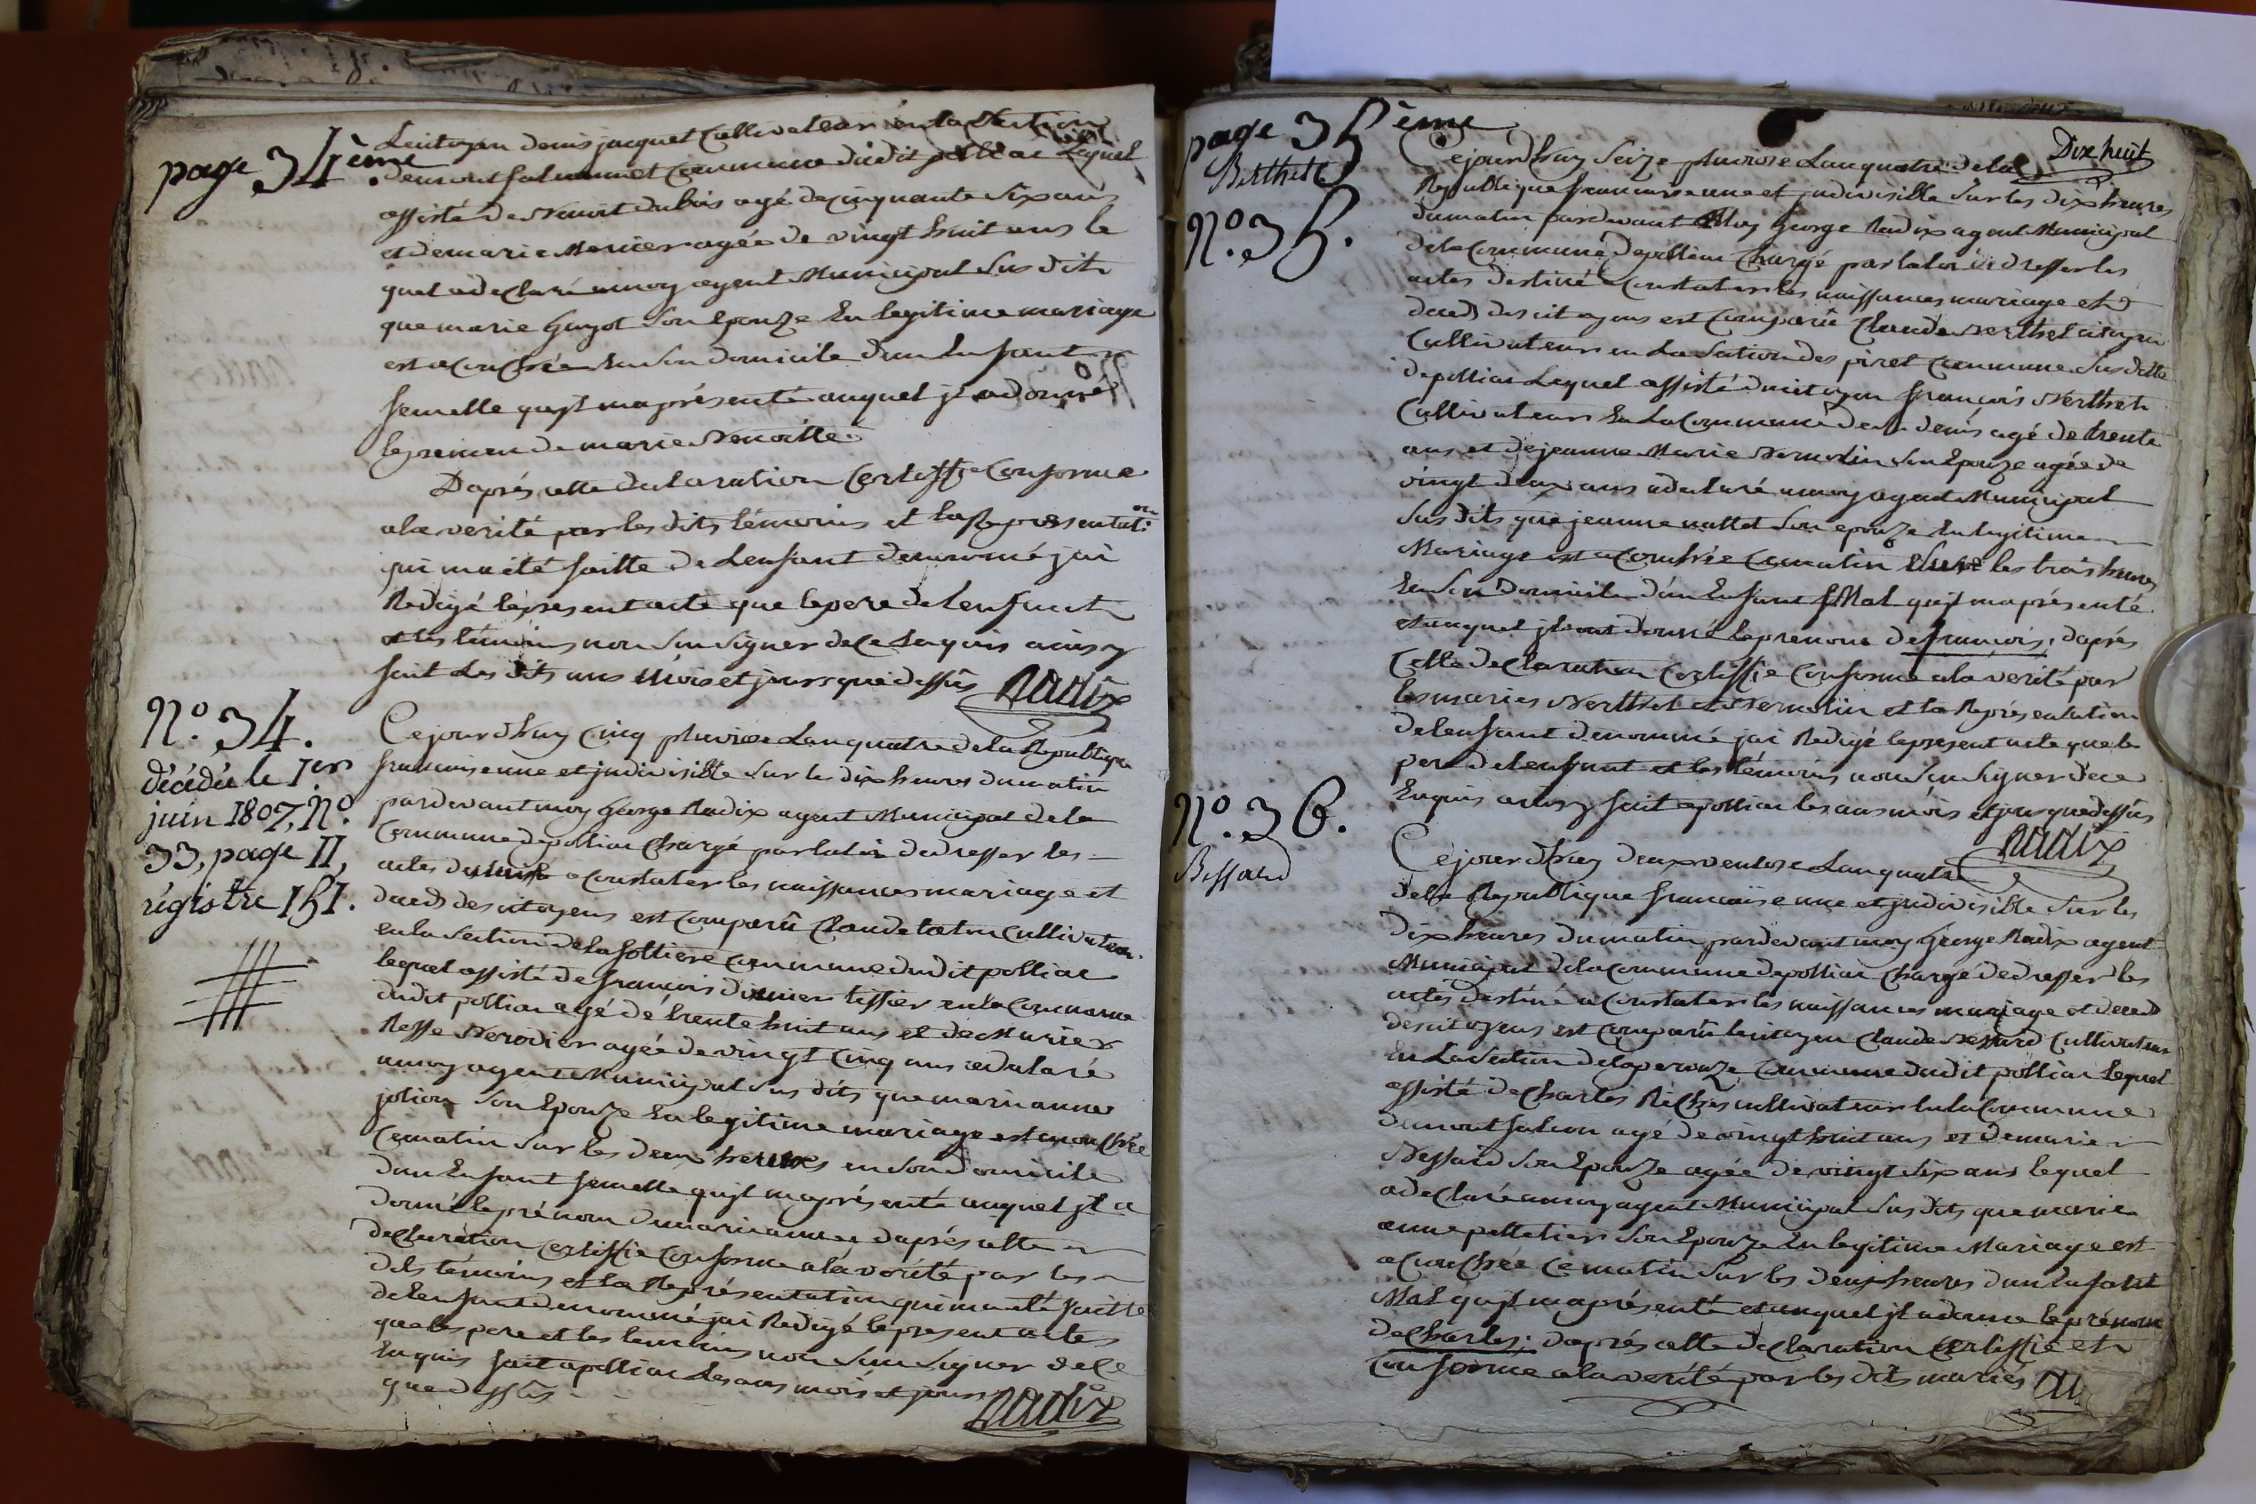 page 34ème.
Lecitoyen denis jacquet Cultivateur en la Section
demontfalconnet Commune dudit polliat Lequel
assisté de Benoit dubois agé decinquante Six ans
et demarie Mercier agée de vingt huit ans le
quel adeclaré amoy agent Municipal Sus dit
que marie Guyot Son Epouze En legitime mariage
est acouchée En Son domicile d'un Enfant
femelle quil maprésenté auquel jl adonné
leprenom de marie Benoitte.
Daprés cette declaration Certiffié Conforme
ala verité par les dits témoins et lapresentati
on
qui ma été faitte de Lenfant denommé jai
Redigé leprésent acte que lepere de lenfant
et les témoins non Su Signer de ce Enquis ainsy
fait Les dits ans mois et jours que dessus
Nadix
N.º 34.
décédée le 1er
juin 1807, N.º
33, page II,
régistre 151.
Cejourd'huy Cinq pluviose Lanquatre dela Republique
francaise une et jndivisible Sur les dix heures dumatin
pardevant moy George Nadix agent Municipal dela
Commune depolliat Chargé parlaloi dedresser les
actes destiné a Constater les naissances mariage et
deceds descitoyens est Comparû Claude Cultivateur
en la Section de la follière Commune dudit polliat
lequel assisté defrancois tissier en la Commune
dudit polliat agé de trente huit ans et de
agée de vingt Cinq ans adeclaré
amoy agent Municipal Sus dits que marianne
jolion Son Epouze En legitime mariage est acouchée
Cematin Sur les deux heures en Son domicile
dun Enfant femelle quil maprésenté auquel jl a
donné leprénom de marianne daprés cette
declaration Certiffié Conforme ala vérité par les
dits témoins et la Représentation qui ma été faitte
delenfant denommé jai Redigé lepresent actes
que les pere et les temoins non Su Signer de ce
Enquis fait apolliat Les ans mois et jours
que dessus
Nadix
page 35ème
Dix huit
Berthet
N.º 35.
Cejourd'huy Seize pluviose Lanquatre dela
Republique francaise une et jndivisible Sur les dix heures
dumatin pardevant Moy George Nadix agent Municipal
dela Commune depolliat Chargé parlaloi dedresser les
actes destiné a Constater les naissances mariage et
deceds des citoyens est Comparû Claude Berthet citoyen
Cultivateur en La Section des piret Commune Sus ditte
depolliat Lequel assisté ducitoyen françois Berthet
Cultivateur En La Commune de St denis agé de trente
ans et de jeanne Marie Bernolin Son Epouze agée de
vingt deux ans adeclaré amoy agent Municipal
Sus dits que jeanne nallet Son epouze En legitime
Mariage est acouchée Cematin Sur les trois heures
En Son domicile d'un Enfant Mal quil maprésenté
et auquel jl ont donné leprenom defrancois, daprés
Cette declaration Certiffié Conforme ala verité par
les mariés Berthet et Bernolin et la Représentation
delenfant denommé jai Redigé lepresent acte que le
pere delenfant et les témoins non Su Signer de ce
Enquis ainsy fait apolliat les ans mois et jours que dessus
Nadix
N.º 36.
Bessard
Cejourd'huy deux ventose Lanquatre
dela Republique francaise une et jndivisible Sur les
dix heures dumatin pardevant moy George Nadix agent
Municipal dela Commune depolliat Chargé dedresser les
actes destiné a Constater les naissances mariage et deceds
descitoyens est Comparû lecitoyen Claude Bessard Cultivateur
En La Section dela perouze Commune dudit polliat Lequel
assisté de Charles Riche cultivateur En la Commune
de montfalcon agé de vingt huit ans et de marie
Bessard Son Epouze agée de vingt Six ans lequel
adeclaré amoy agent Municipal Sus dits que marie
anne pelletier Son Epouze En legitime Mariage est
acouchée Ce matin Sur les deux heures dun Enfant
Mal quil maprésenté et auquel jl adonné le prénom
de Charles; daprés cette declaration Certiffié et
Conforme ala vérité par les dits mariés